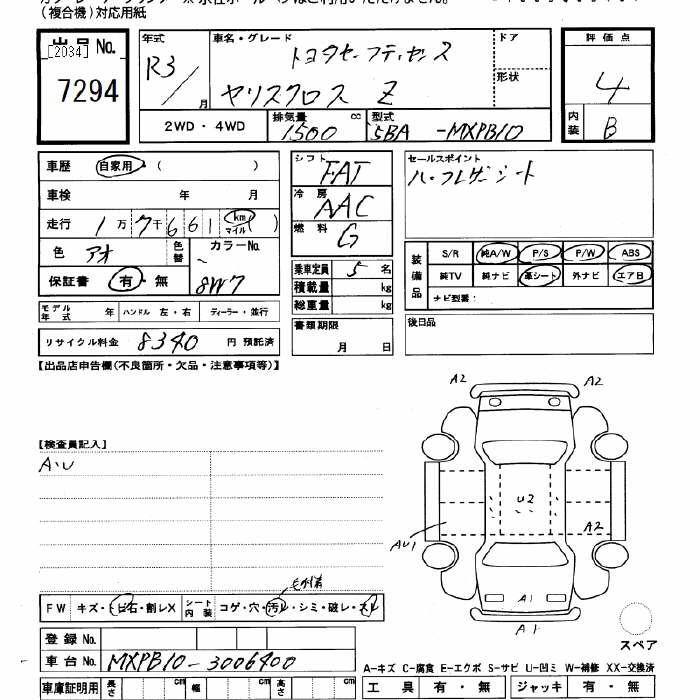 (複合機)対応用紙
出品No.
[2034]
7294
年式
R3/
月
車名・グレード
トヨタセーフティセンス
ヤリスクロス Z
ドア
形状
2WD・4WD
排気量
1500
cc
型式
5BA -MXPB10
評価点
4
内装
B
車歴
自家用・(
車検 年 月
走行 1万7千661(km マイル)
色 アオ 色替
カラーNo.
8W7
保証書 有・無
モデル年式 年 ハンドル 左・右 ディーラー・並行
リサイクル料金 8340 円 預託済
シフト
FAT
冷房
AAC
燃料
G
乗車定員 5 名
積載量 kg
総重量 kg
書類期限
月 日
セールスポイント
ハーフレザーシート
装備品
S/R 純A/W P/S P/W ABS
純TV 純ナビ 革シート 外ナビ エアB
ナビ型番:
後日品
【出品店申告欄(不良箇所・欠品・注意事項等)】
【検査員記入】
A・U
A2
A2
U2
AU1
A2
A1
A1
スペア
FW キズ・トビ石・割レX
シート内装 コゲ・穴・汚レ・シミ・破レ・スレ
登録No.
車台No. MXPB10-3006400
A-キズ C-腐食 E-エクボ S-サビ U-凹ミ W-補修 XX-交換済
車庫証明用 長さ cm 幅 cm 高さ cm
工具 有・無 ジャッキ 有・無